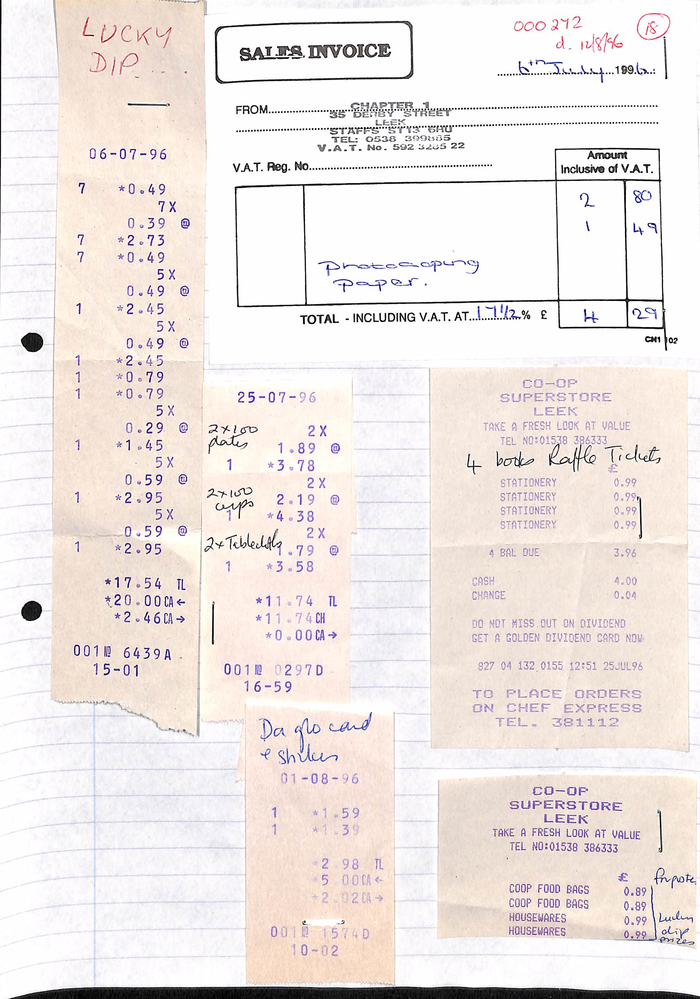 LUCKY
DIP.....
06-07-96
7 *0.49
7X
0.39 @
7 *2.73
7 *0.49
5X
0.49 @
1 *2.45
5X
0.49 @
1 *2.45
1 *0.79
1 *0.79
5X
0.29 @
1 *1.45
5X
0.59 @
1 *2.95
5X
0.59 @
1 *2.95
*17.54 TL
*20.00CA←
*2.46CA→
001№ 6439A
15-01
SALES INVOICE
000272
18
d. 12/8/96
6th July 1996
FROM
CHAPTER 1
35 DERBY STREET
LEEK
STAFFS ST13 6HU
TEL: 0538 399885
V.A.T. No. 592 3285 22
V.A.T. Reg. No.
Amount
Inclusive of V.A.T.
2 80
1 49
Photocoping
paper.
TOTAL - INCLUDING V.A.T. AT 17 1/2 % £ 4 29
CM1 02
25-07-96
2x100 2X
plates 1.89 @
1 *3.78
2x100 2X
cups 2.19 @
1 *4.38
2X
2x Tablecloths 1.79 @
1 *3.58
*11.74 TL
*11.74CH
*0.00CA→
001№ 0297D
16-59
CO-OP
SUPERSTORE
LEEK
TAKE A FRESH LOOK AT VALUE
TEL NO:01538 386333
4 books Raffle Tickets
£
STATIONERY 0.99
STATIONERY 0.99
STATIONERY 0.99
STATIONERY 0.99
4 BAL DUE 3.96
CASH 4.00
CHANGE 0.04
DO NOT MISS OUT ON DIVIDEND
GET A GOLDEN DIVIDEND CARD NOW
827 04 132 0155 12:51 25JUL96
TO PLACE ORDERS
ON CHEF EXPRESS
TEL. 381112
Da glo card
& stickers
01-08-96
1 *1.59
1 *1.39
*2.98 TL
*5.00CA←
*2.02CA→
001№ 1574D
10-02
CO-OP
SUPERSTORE
LEEK
TAKE A FRESH LOOK AT VALUE
TEL NO:01538 386333
£
COOP FOOD BAGS 0.89
COOP FOOD BAGS 0.89
HOUSEWARES 0.99 Lucky
HOUSEWARES 0.99 dip
prizes